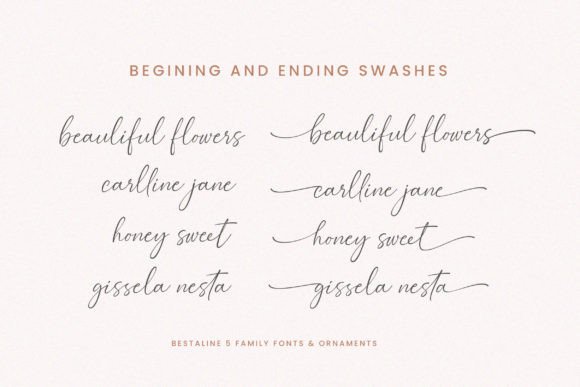 BEGINING AND ENDING SWASHES
beauliful flowers beauliful flowers
carlline jane carlline jane
honey sweet honey sweet
gissela nesta gissela nesta
BESTALINE 5 FAMILY FONTS & ORNAMENTS